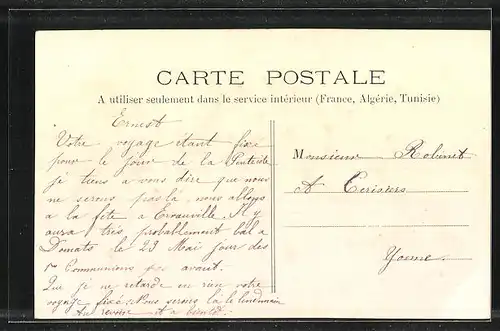 CARTE POSTALE
A utiliser seulement dans le service intérieur (France, Algérie, Tunisie)
Ernest
Votre voyage étant fixé
pour le jour de la Pentecôte
je tiens a vous dire que nous
ne serons pas là, nous allons
a la fête a Ervauville. Il y
aura très probablement bal a
Domats le 23 Mai jour des
Communions avant.
Que je ne retarde en rien votre
voyage fixé. Nous serons là le lendemain
Au revoir et a bientôt.
Monsieur Robinet
A Cerisiers
Yonne.